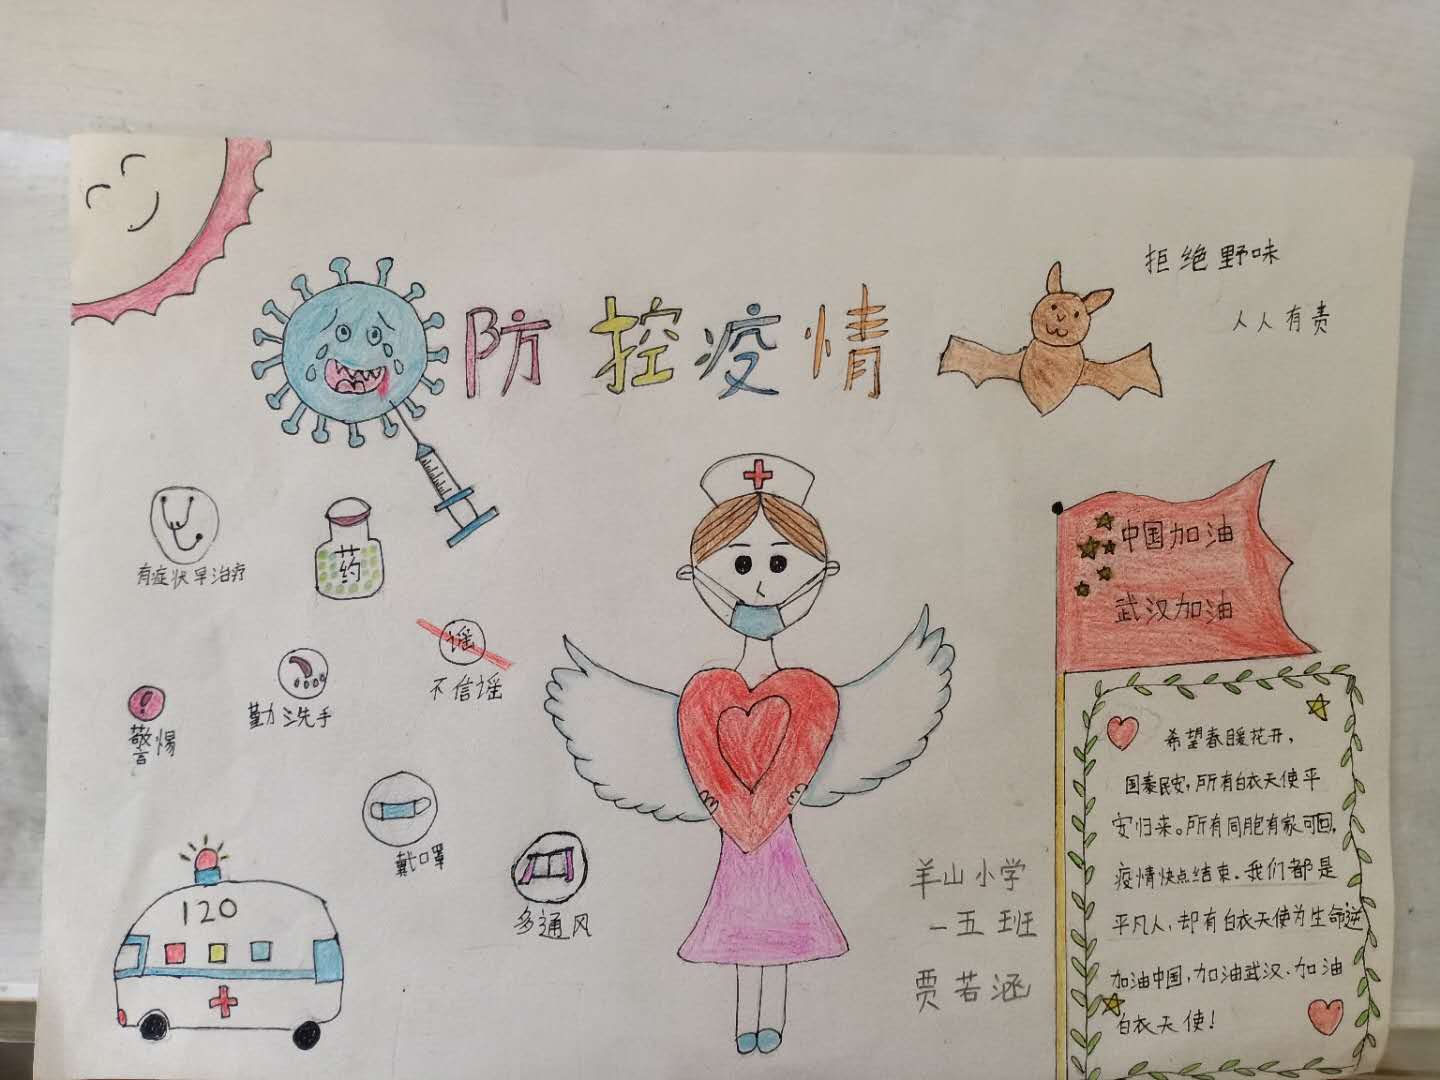 防控疫情
拒绝野味
人人有责
有症状早治疗
药
谣
不信谣
勤洗手
警惕
戴口罩
多通风
120
中国加油
武汉加油
希望春暖花开，
国泰民安，所有白衣天使平
安归来。所有同胞有家可回，
疫情快点结束。我们都是
平凡人，却有白衣天使为生命逆
加油中国，加油武汉、加油
白衣天使！
羊山小学
一五班
贾若涵